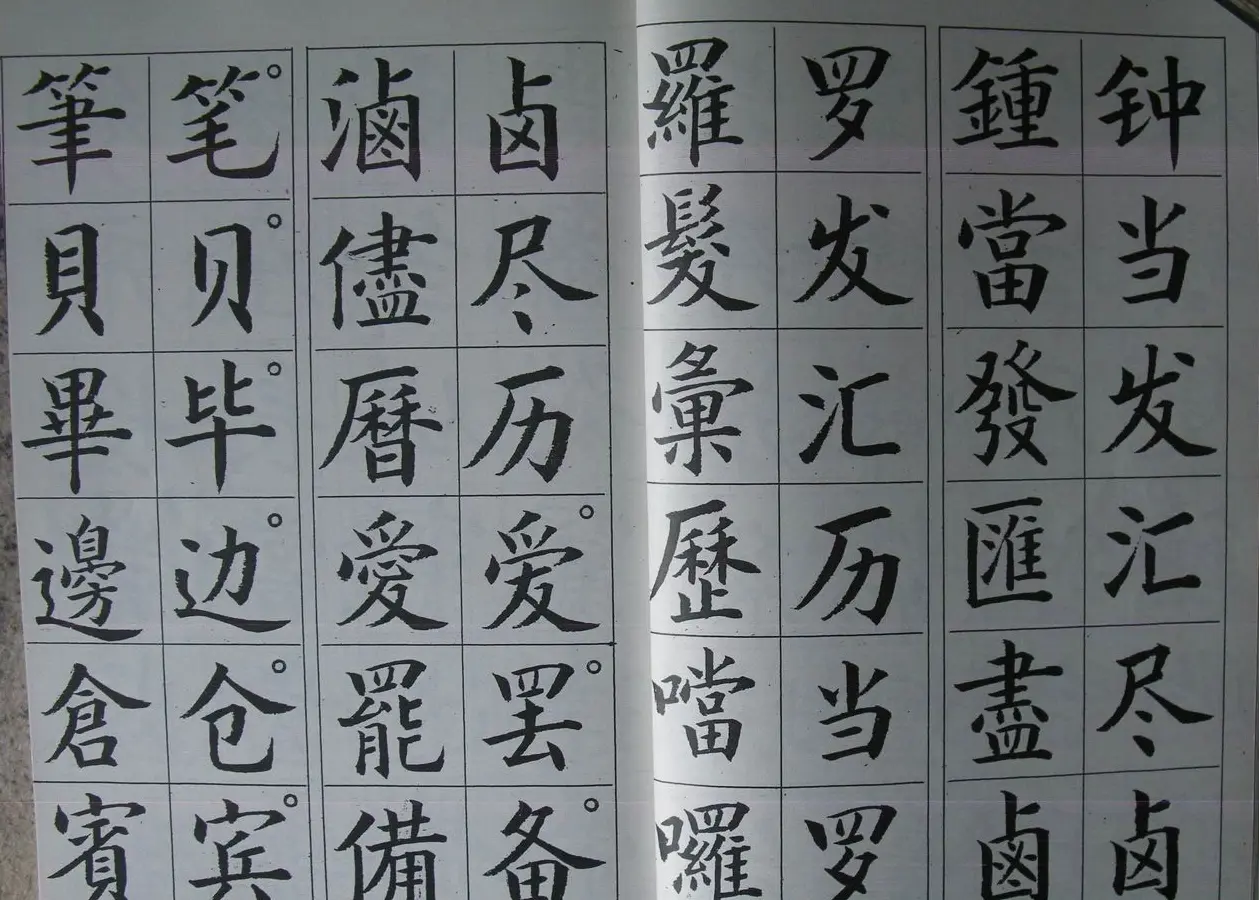 钟当发汇尽卤
鍾當發匯盡鹵
罗发汇历当罗
羅髮彙歷噹囉
卤尽历爱罢备
滷儘曆愛罷備
笔贝毕边仓宾
筆貝畢邊倉賓